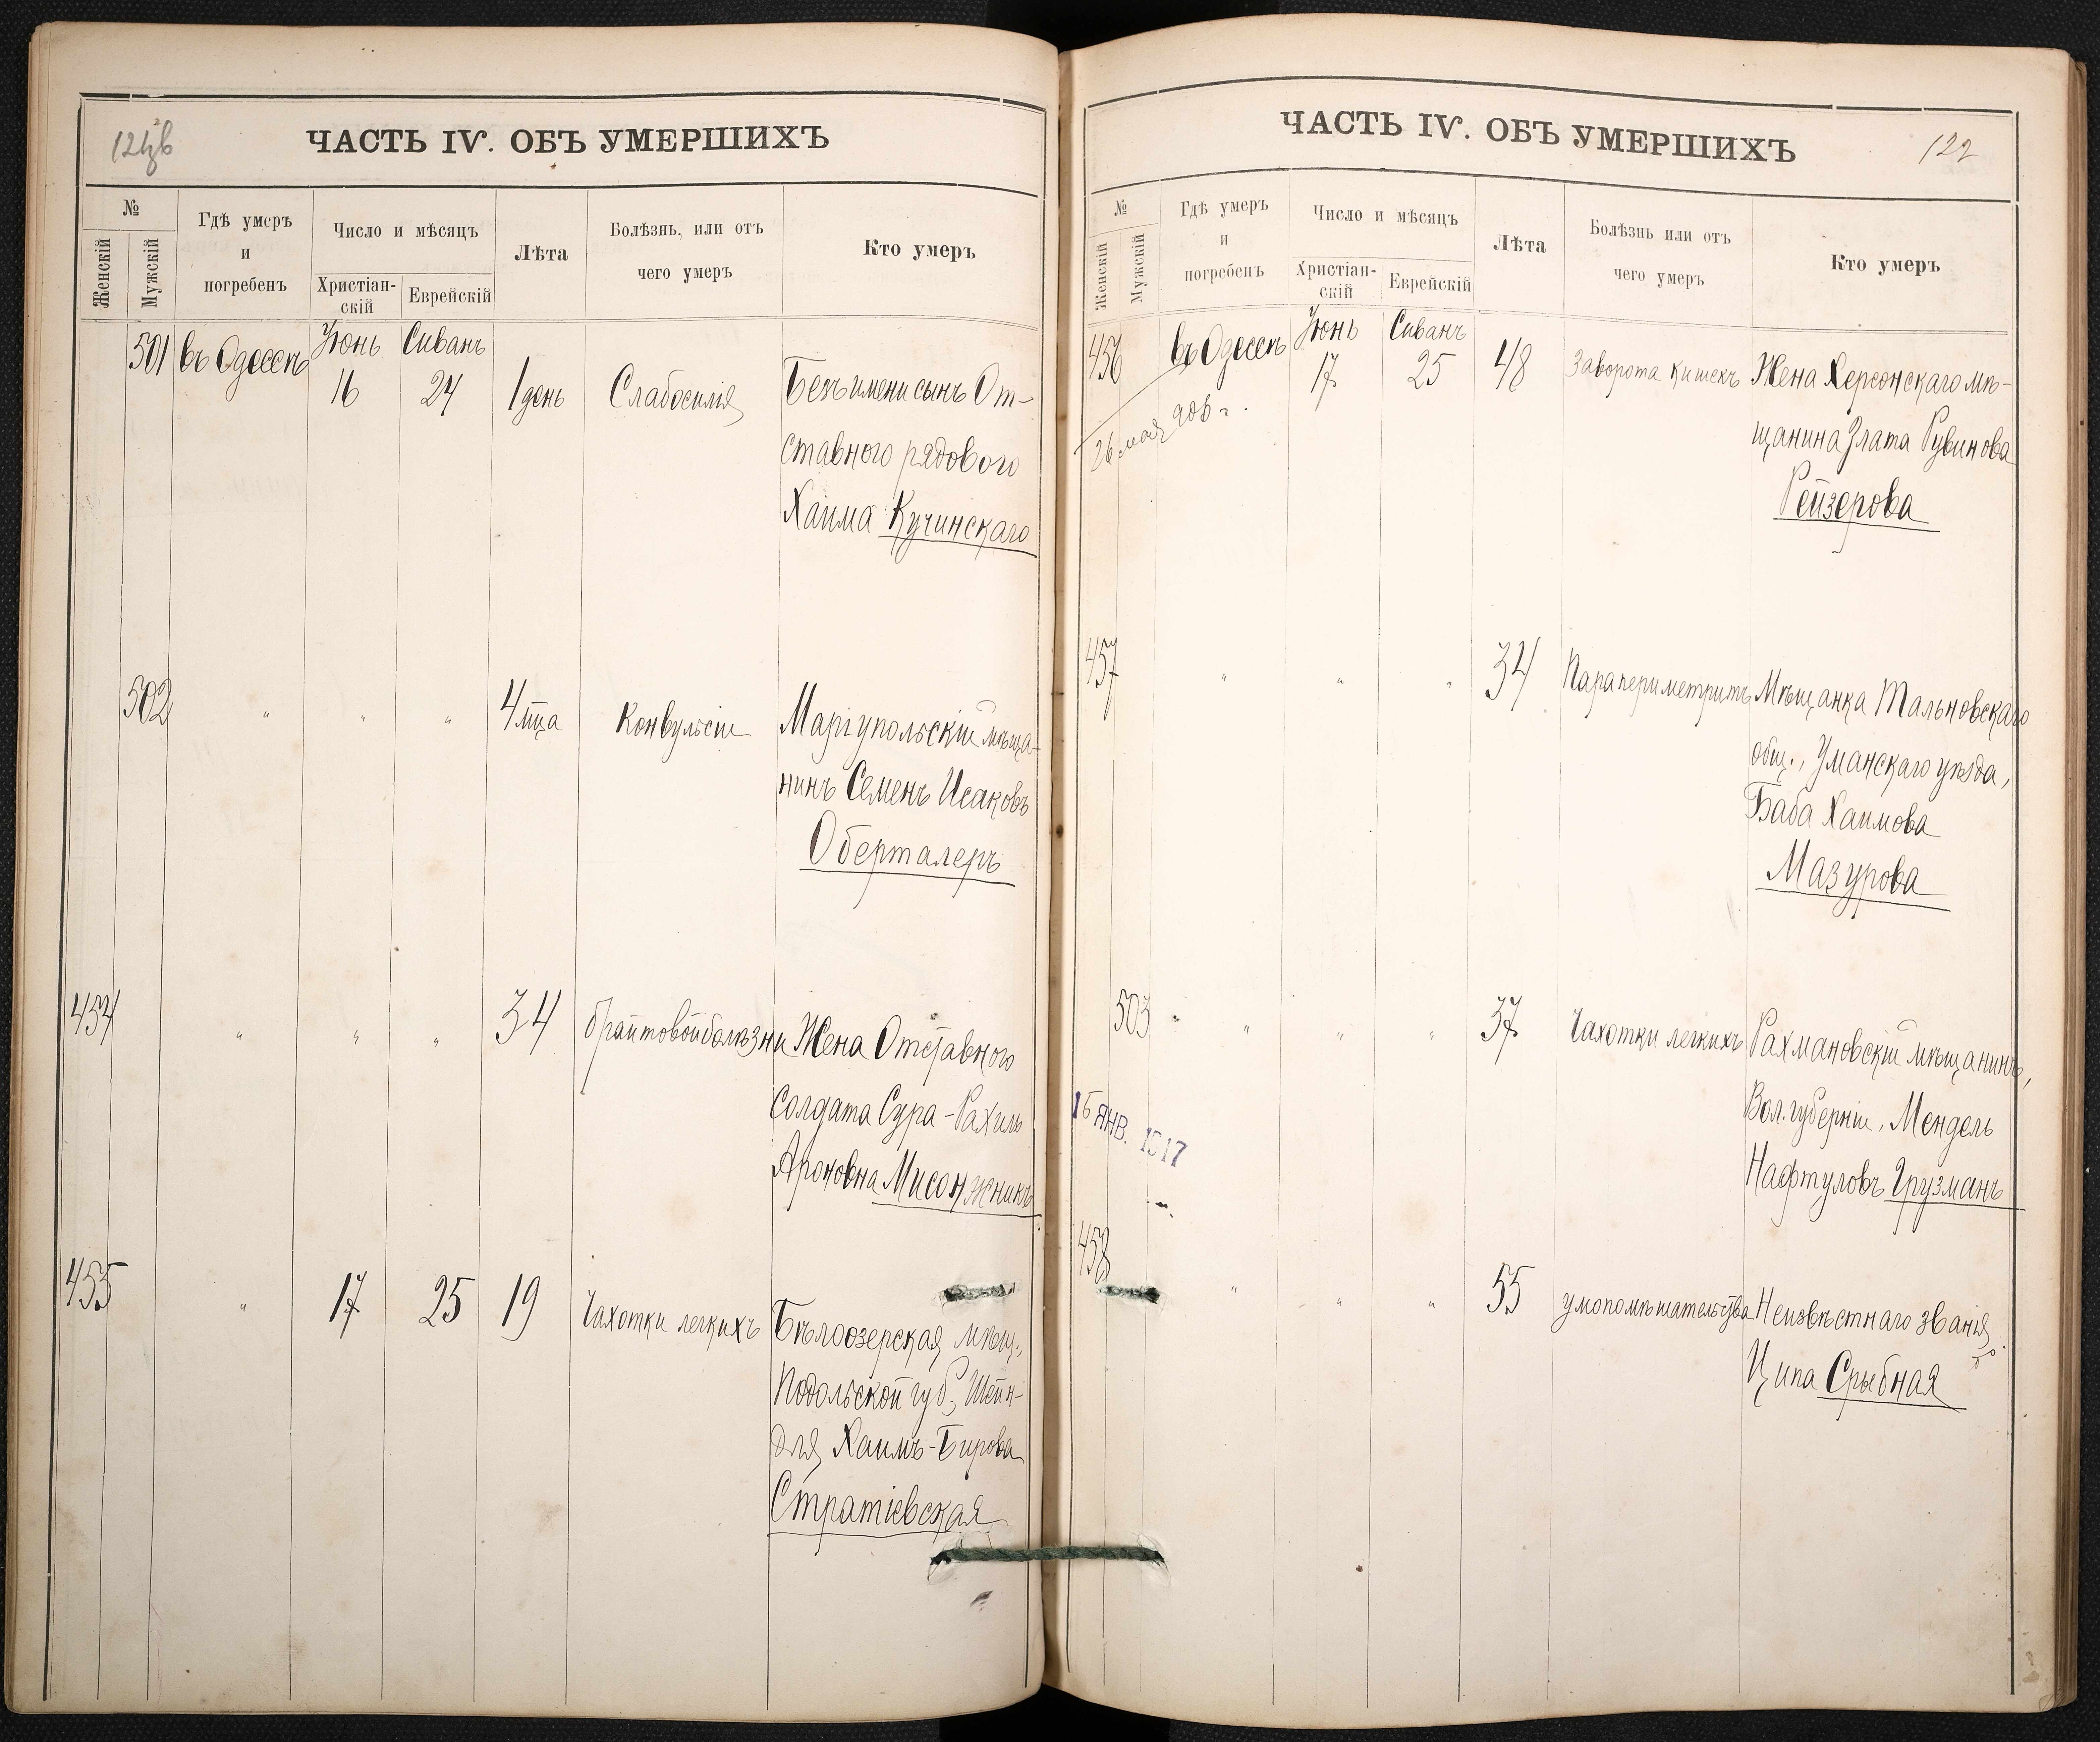 ЧАСТЬ IV. ОБЪ УМЕРШИХЪ
№
Женскій
Мужскій
Гдѣ умеръ
и
погребенъ
Число и мѣсяцъ
Христіан-
скій
Еврейскій
Лѣта
Болѣзнь, или отъ
чего умеръ
Кто умеръ
501 въ Одессѣ Іюнь 16 Сиванъ 24 1 день Слабосилія Безъ имени сынъ От-
ставного рядового
Хаима Кучинскаго
502 " " " 4 м̃ца Конвульсіи Маріупольскій мѣща-
нинъ Семенъ Исаковъ
Оберталеръ
454 " " " 34 брайтовой болѣзни Жена Отставного
солдата Сура-Рахиль
Ароновна Мисонжникъ
455 " 17 25 19 Чахотки легкихъ Бѣлоозерская мѣщ.,
Подольской губ., Шейн-
для Хаимъ-Бирова
Стратіевская
ЧАСТЬ IV. ОБЪ УМЕРШИХЪ
122
№
Женскій
Мужскій
Гдѣ умеръ
и
погребенъ
Число и мѣсяцъ
Христіан-
скій
Еврейскій
Лѣта
Болѣзнь или отъ
чего умеръ
Кто умеръ
456 въ Одессѣ Іюнь 17 Сиванъ 25 48 Заворота кишекъ Жена Херсонскаго мѣ-
щанина Злата Рувинова
Рейзерова
26 мая 908 г.
457 " " " 34 Парапериметритъ Мѣщанка Тальновскаго
общ., Уманскаго уѣзда,
Баба Хаимова
Мазурова
503 " " " " 37 Чахотки легкихъ Рахмановскій мѣщанинъ,
Вол. губерніи, Мендель
Нафтуловъ Грузманъ
16 ЯНВ. 1917
458 " " " 55 умопомѣшательства Неизвѣстнаго званія
Ципа Срыбная